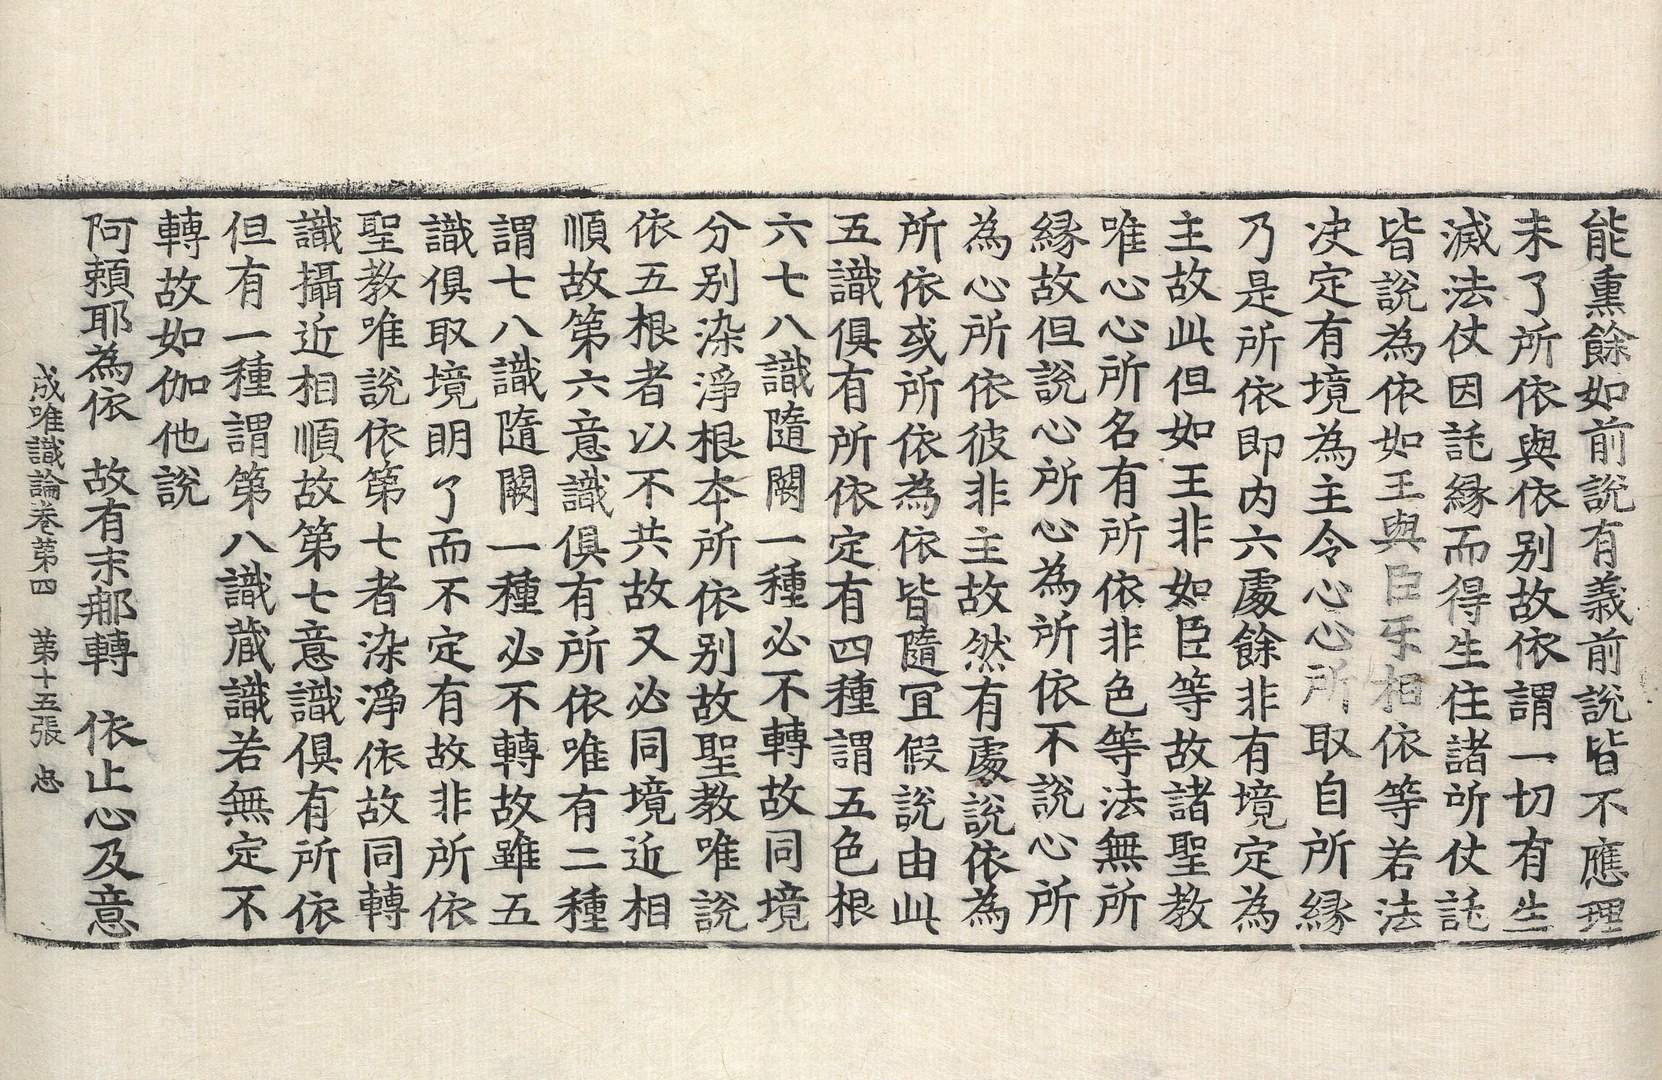 能熏餘如前說有義前說皆不應理
未了所依與依别故依謂一切有生
滅法仗因託縁而得生住諸所仗託
皆說為依如王與臣㸦相依等若法
决定有境為主令心心所取自所縁
乃是所依即内六處餘非有境定為
主故此但如王非如臣等故諸聖教
唯心心所名有所依非色等法無所
縁故但說心所心為所依不說心所
為心所依彼非主故然有處說依為
所依或所依為依皆隨冝假說由此
五識俱有所依定有四種謂五色根
六七八識隨闕一種必不轉故同境
分别染淨根本所依别故聖教唯說
依五根者以不共故又必同境近相
順故第六意識俱有所依唯有二種
謂七八識隨闕一種必不轉故雖五
識俱取境明了而不定有故非所依
聖教唯說依第七者染淨依故同轉
識攝近相順故第七意識俱有所依
但有一種謂第八識藏識若無定不
轉故如伽他說
阿頼耶為依　故有末那轉　依止心及意
成唯識論卷第四　第十五張　忠